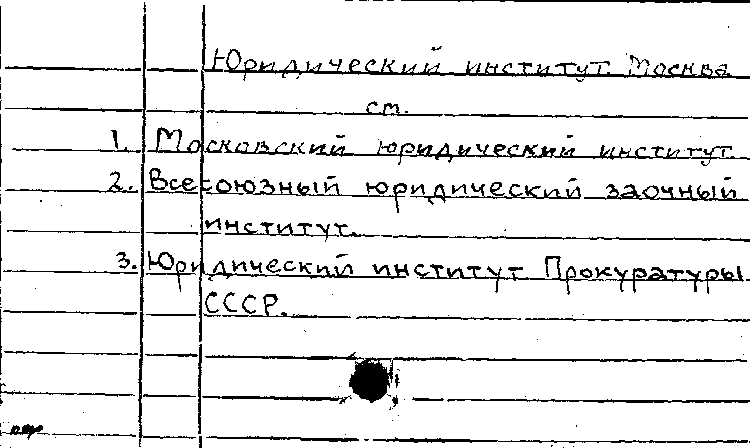 Юридический институт. Москва
см.
1. Московский юридический институт
2. Всесоюзный юридический заочный
институт.
3. Юридический институт Прокуратуры
СССР.